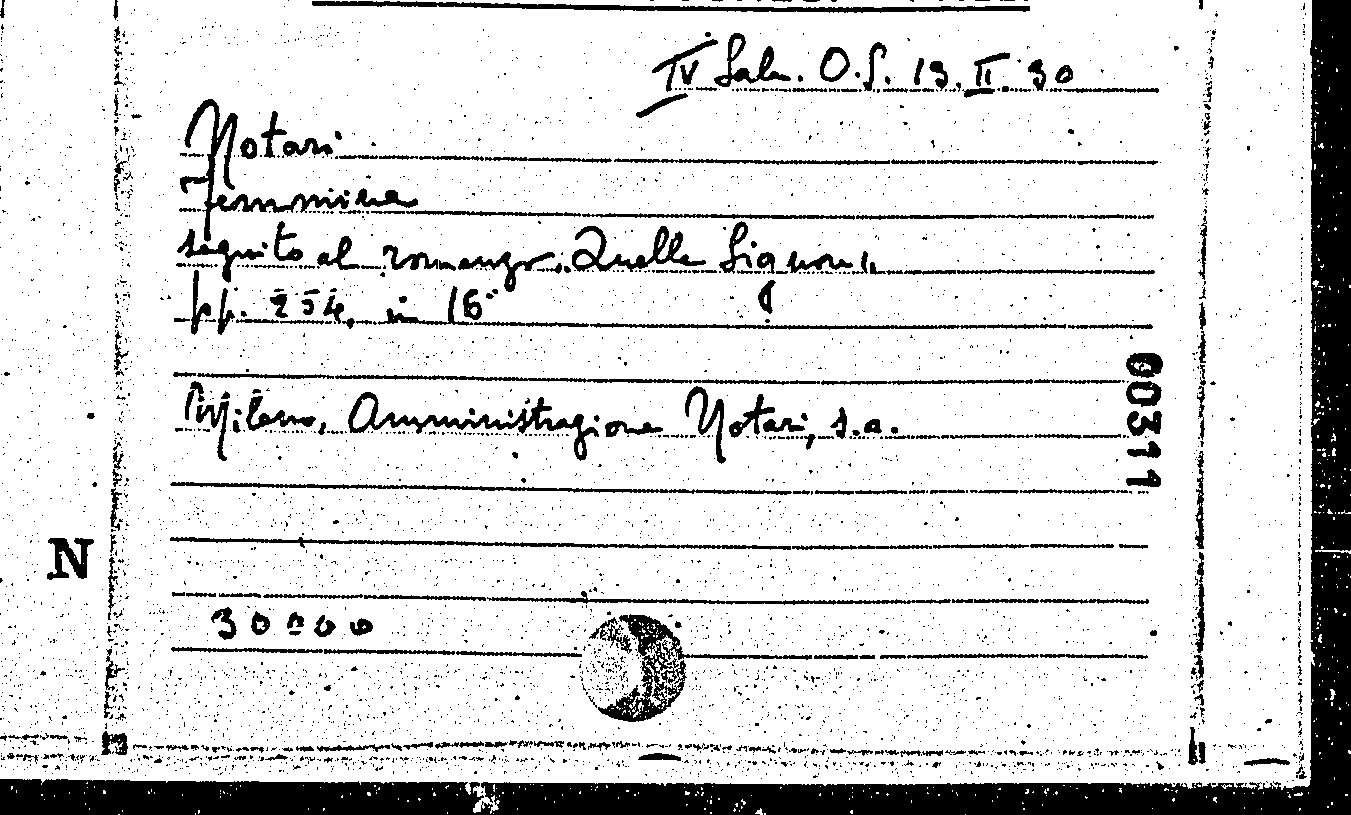 IV Sala. O.S. 13.II.30
Notari
Femmina
seguito al romanzo „Quelle Signore"
pp. 254, in 16°
00311
Milano, Amministrazione Notari, s.a.
N
30000